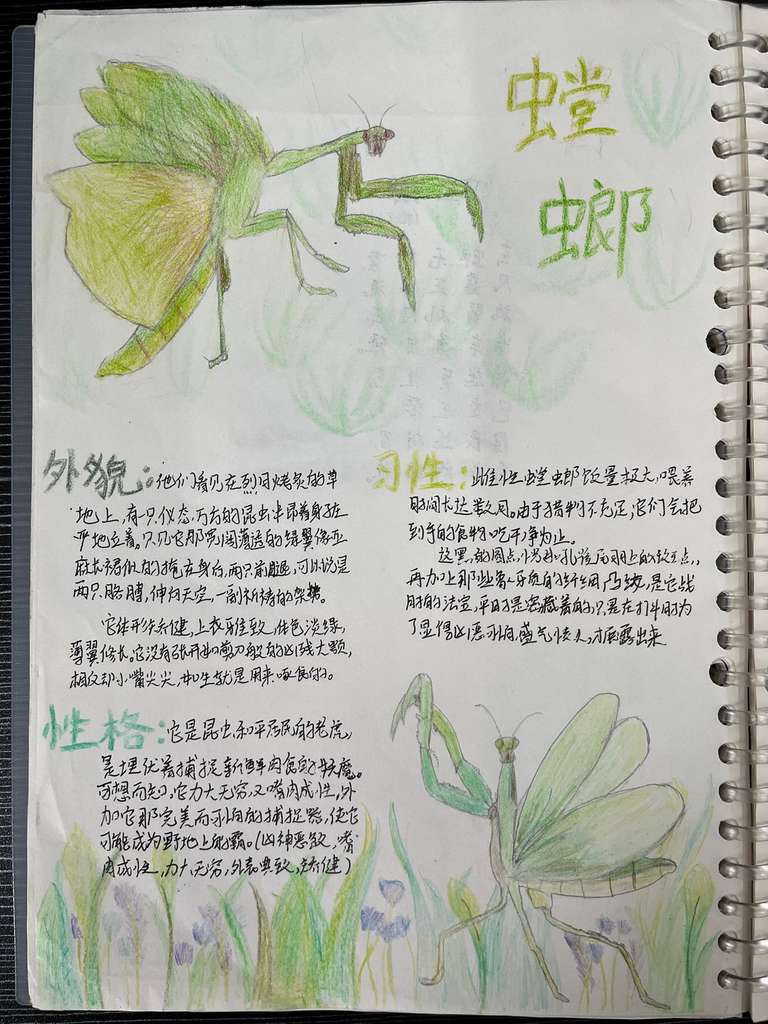 螳
螂
外貌：他们看见在烈日烤炙的草
地上，有一只仪态万方的昆虫半昂着身对在
地立着。只见它那宽阔薄透的绿翼像亚
麻长裙似的掩在身后，两只前腿，可以说是
两只胳膊，伸向天空，一副祈祷的架势。
它体形矫健，上衣雅致，体色淡绿，
薄翼修长。它没有张开如剪刀般的凶残大颚，
相反却小嘴尖尖，如生就是用来啄食的。
性格：它是昆虫和平居民的老虎，
是埋伏着捕捉新鲜肉食的妖魔。
可想而知，它力大无穷，又嗜肉成性，外
加它那完美而可怕的捕捉器，使它
可能成为野地上的霸。(凶神恶煞，嗜
肉成性，力大无穷，外表典致，矫健)
习性：雌性螳螂饭量极大，喂养
时间长达数月。由于猎物不充足，它们会把
到手的食物吃干净为止。
这黑的圆点，恰如孔雀尾羽上的斑点，
再加上那些象牙质的纤细凸纹，是它战
时的法宝，平时是密藏着的，只是在打斗时为
了显得凶恶可怕，盛气凌人，才展露出来